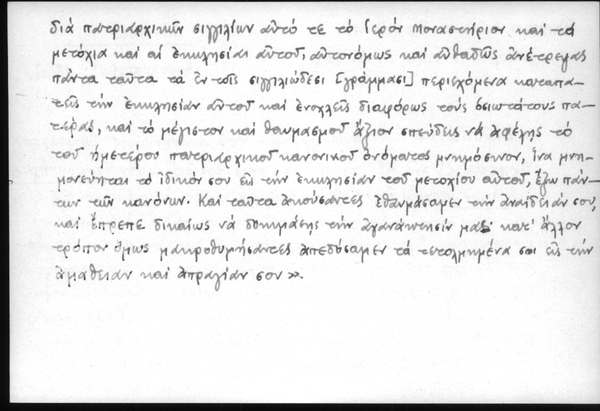 διά πατριαρχικῶν σιγγιλίων αὐτό τε τό Ἱερόν Μοναστήριον καί τά
μετόχια καί αἱ ἐκκλησίαι αὐτοῦ, αὐτονόμως καί αὐθαδῶς ἀνέτρεψας
πάντα ταῦτα τά ἐν τοῖς σιγγιλιώδεσι [γράμμασι] περιεχόμενα καταπα-
τεῖς τήν ἐκκλησίαν αὐτοῦ καί ἐνοχλεῖς διαφόρως τούς ὁσιωτάτους πα-
τέρας, καί τό μέγιστον καί θαυμασμοῦ ἄξιον σπεύδεις νά ἀφέλῃς τό
τοῦ ἡμετέρου πατριαρχικοῦ κανονικοῦ ὀνόματος μνημόσυνον, ἵνα μνη-
μονεύηται τό ἰδικόν σου εἰς τήν ἐκκλησίαν τοῦ μετοχίου αὐτοῦ, ἔξω πάν-
των τῶν κανόνων. Καί ταῦτα ἀκούσαντες ἐθαυμάσαμεν τήν ἀναίδειάν σου,
καί ἔπρεπε δικαίως νά δοκιμάσῃς τήν ἀγανάκτησίν μας· κατ' ἄλλον
τρόπον ὅμως μακροθυμήσαντες ἀπεδώσαμεν τά τετολμημένα σοι εἰς τήν
ἀμάθειαν καί ἀπραγίαν σου».